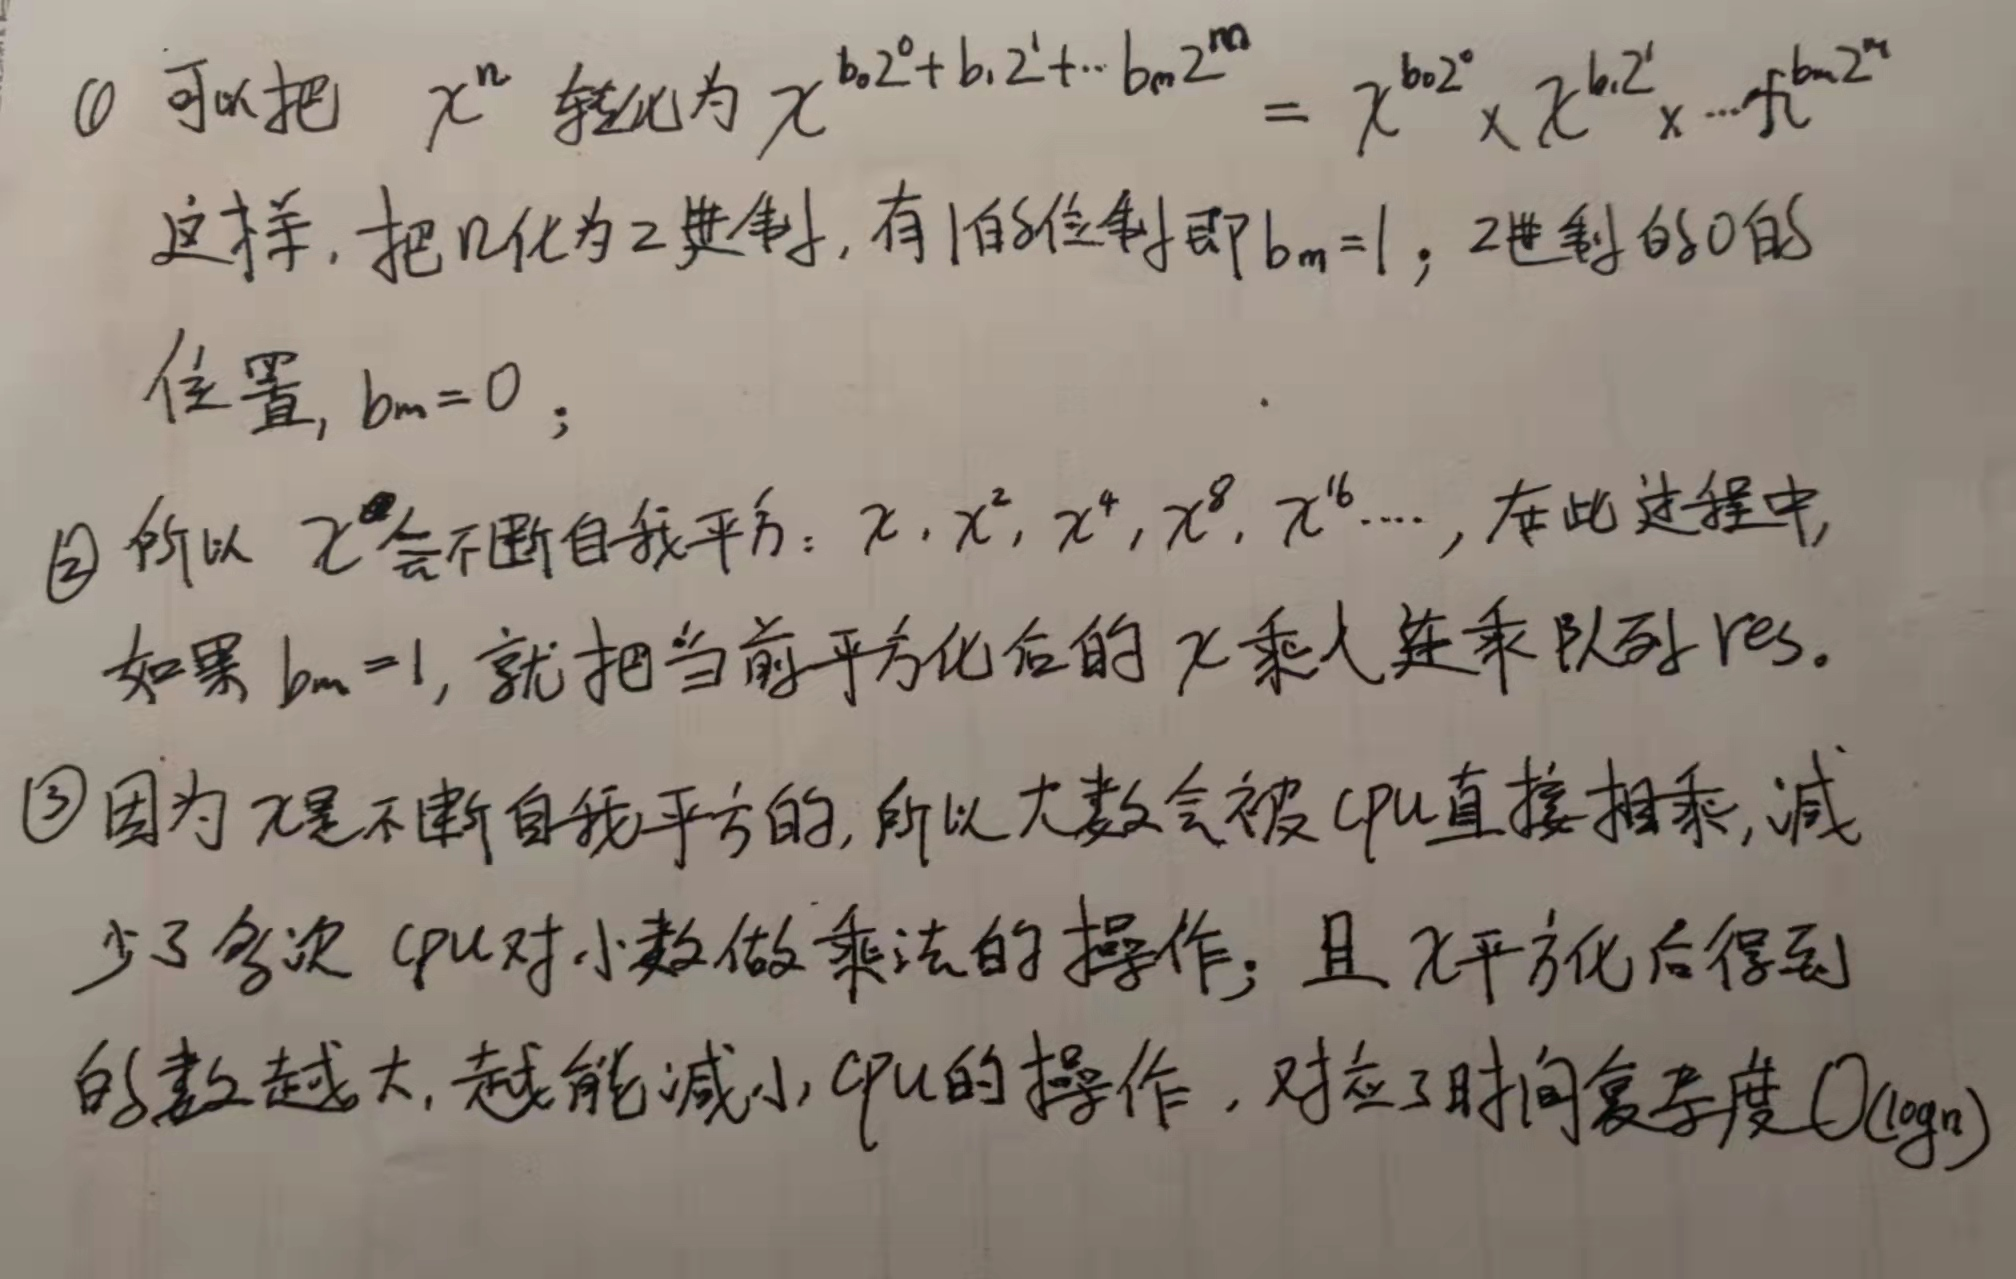 ① 可以把 xⁿ 转化为 x^{b₀2⁰+b₁2¹+…bₘ2ᵐ} = x^{b₀2⁰} × x^{b₁2¹} × …x^{bₘ2ᵐ}
这样, 把n化为2进制, 有1的位制即bₘ=1; 2进制的0的
位置, bₘ=0;
② 所以 x会不断自我平方: x, x², x⁴, x⁸, x¹⁶…., 在此过程中,
如果 bₘ=1, 就把当前平方化后的 x 乘入连乘队列 res。
③ 因为 x是不断自我平方的, 所以大数会被cpu直接相乘, 减
少了多次 cpu对小数做乘法的操作; 且 x平方化后得到
的数越大, 越能减小cpu的操作, 对应了时间复杂度O(logn)